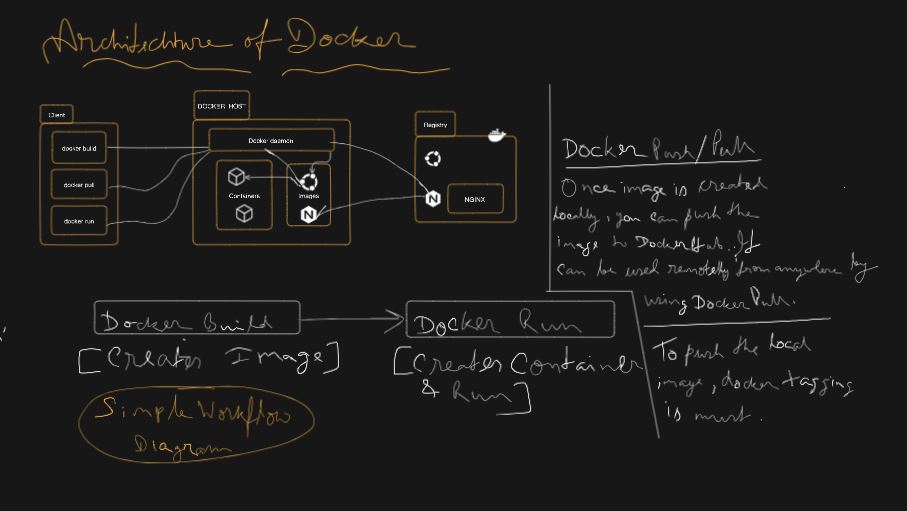 Architechture of Docker
Client
docker build
docker pull
docker run
DOCKER HOST
Docker daemon
Containers
Images
Registry
NGINX
Docker Build
[Creates Image]
Docker Run
[Creates Container
& Run]
Simple Workflow
Diagram
Docker Push/Pull
Once image is created
locally, you can push the
image to DockerHub. It
can be used remotely from anywhere by
using Docker Pull.
To push the local
image, docker tagging
is must.